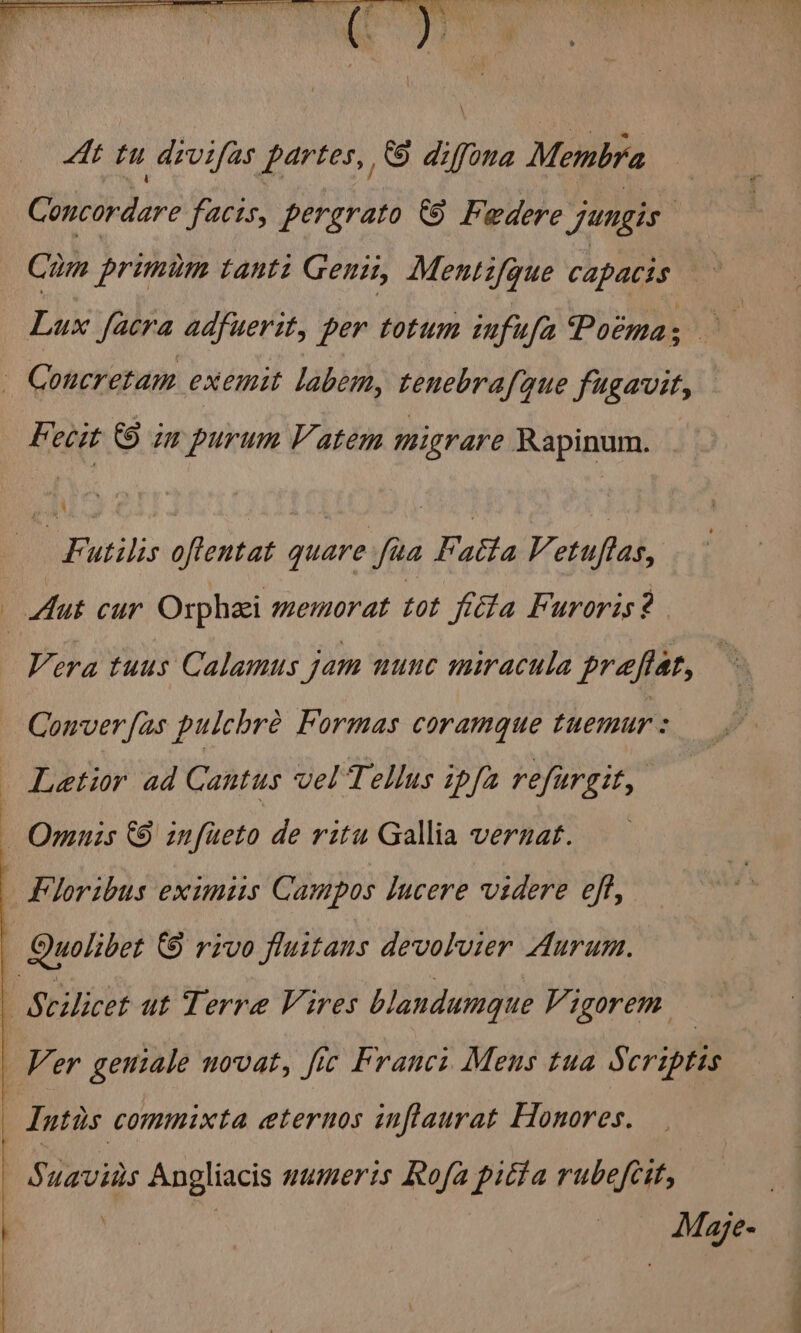 ( )
At tu diviſas partes, & diſſona Membra
Concordare facis, pergrato & Fœdere jungis
Cùm primùm tanti Genii, Mentiſque capacis
Lux ſacra adfuerit, per totum infuſa Poëma;
Concretam exemit labem, tenebraſque fugavit,
Fecit & in purum Vatem migrare Rapinum.
Futilis oſtentat quare ſua Facta Vetuſtas,
Aut cur Orphæi memorat tot ficta Furoris?
Vera tuus Calamus jam nunc miracula præſtat,
Converſas pulchrè Formas coramque tuemur:
Lætior ad Cantus vel Tellus ipſa reſurgit,
Omnis & inſueto de ritu Gallia vernat.
Floribus eximiis Campos lucere videre eſt,
Quolibet & rivo fluitans devolvier Aurum.
Scilicet ut Terræ Vires blandumque Vigorem
Ver geniale novat, ſic Franci Mens tua Scriptis
Intùs commixta æternos inſtaurat Honores.
Suaviùs Angliacis numeris Roſa picta rubeſcit,
Maje-